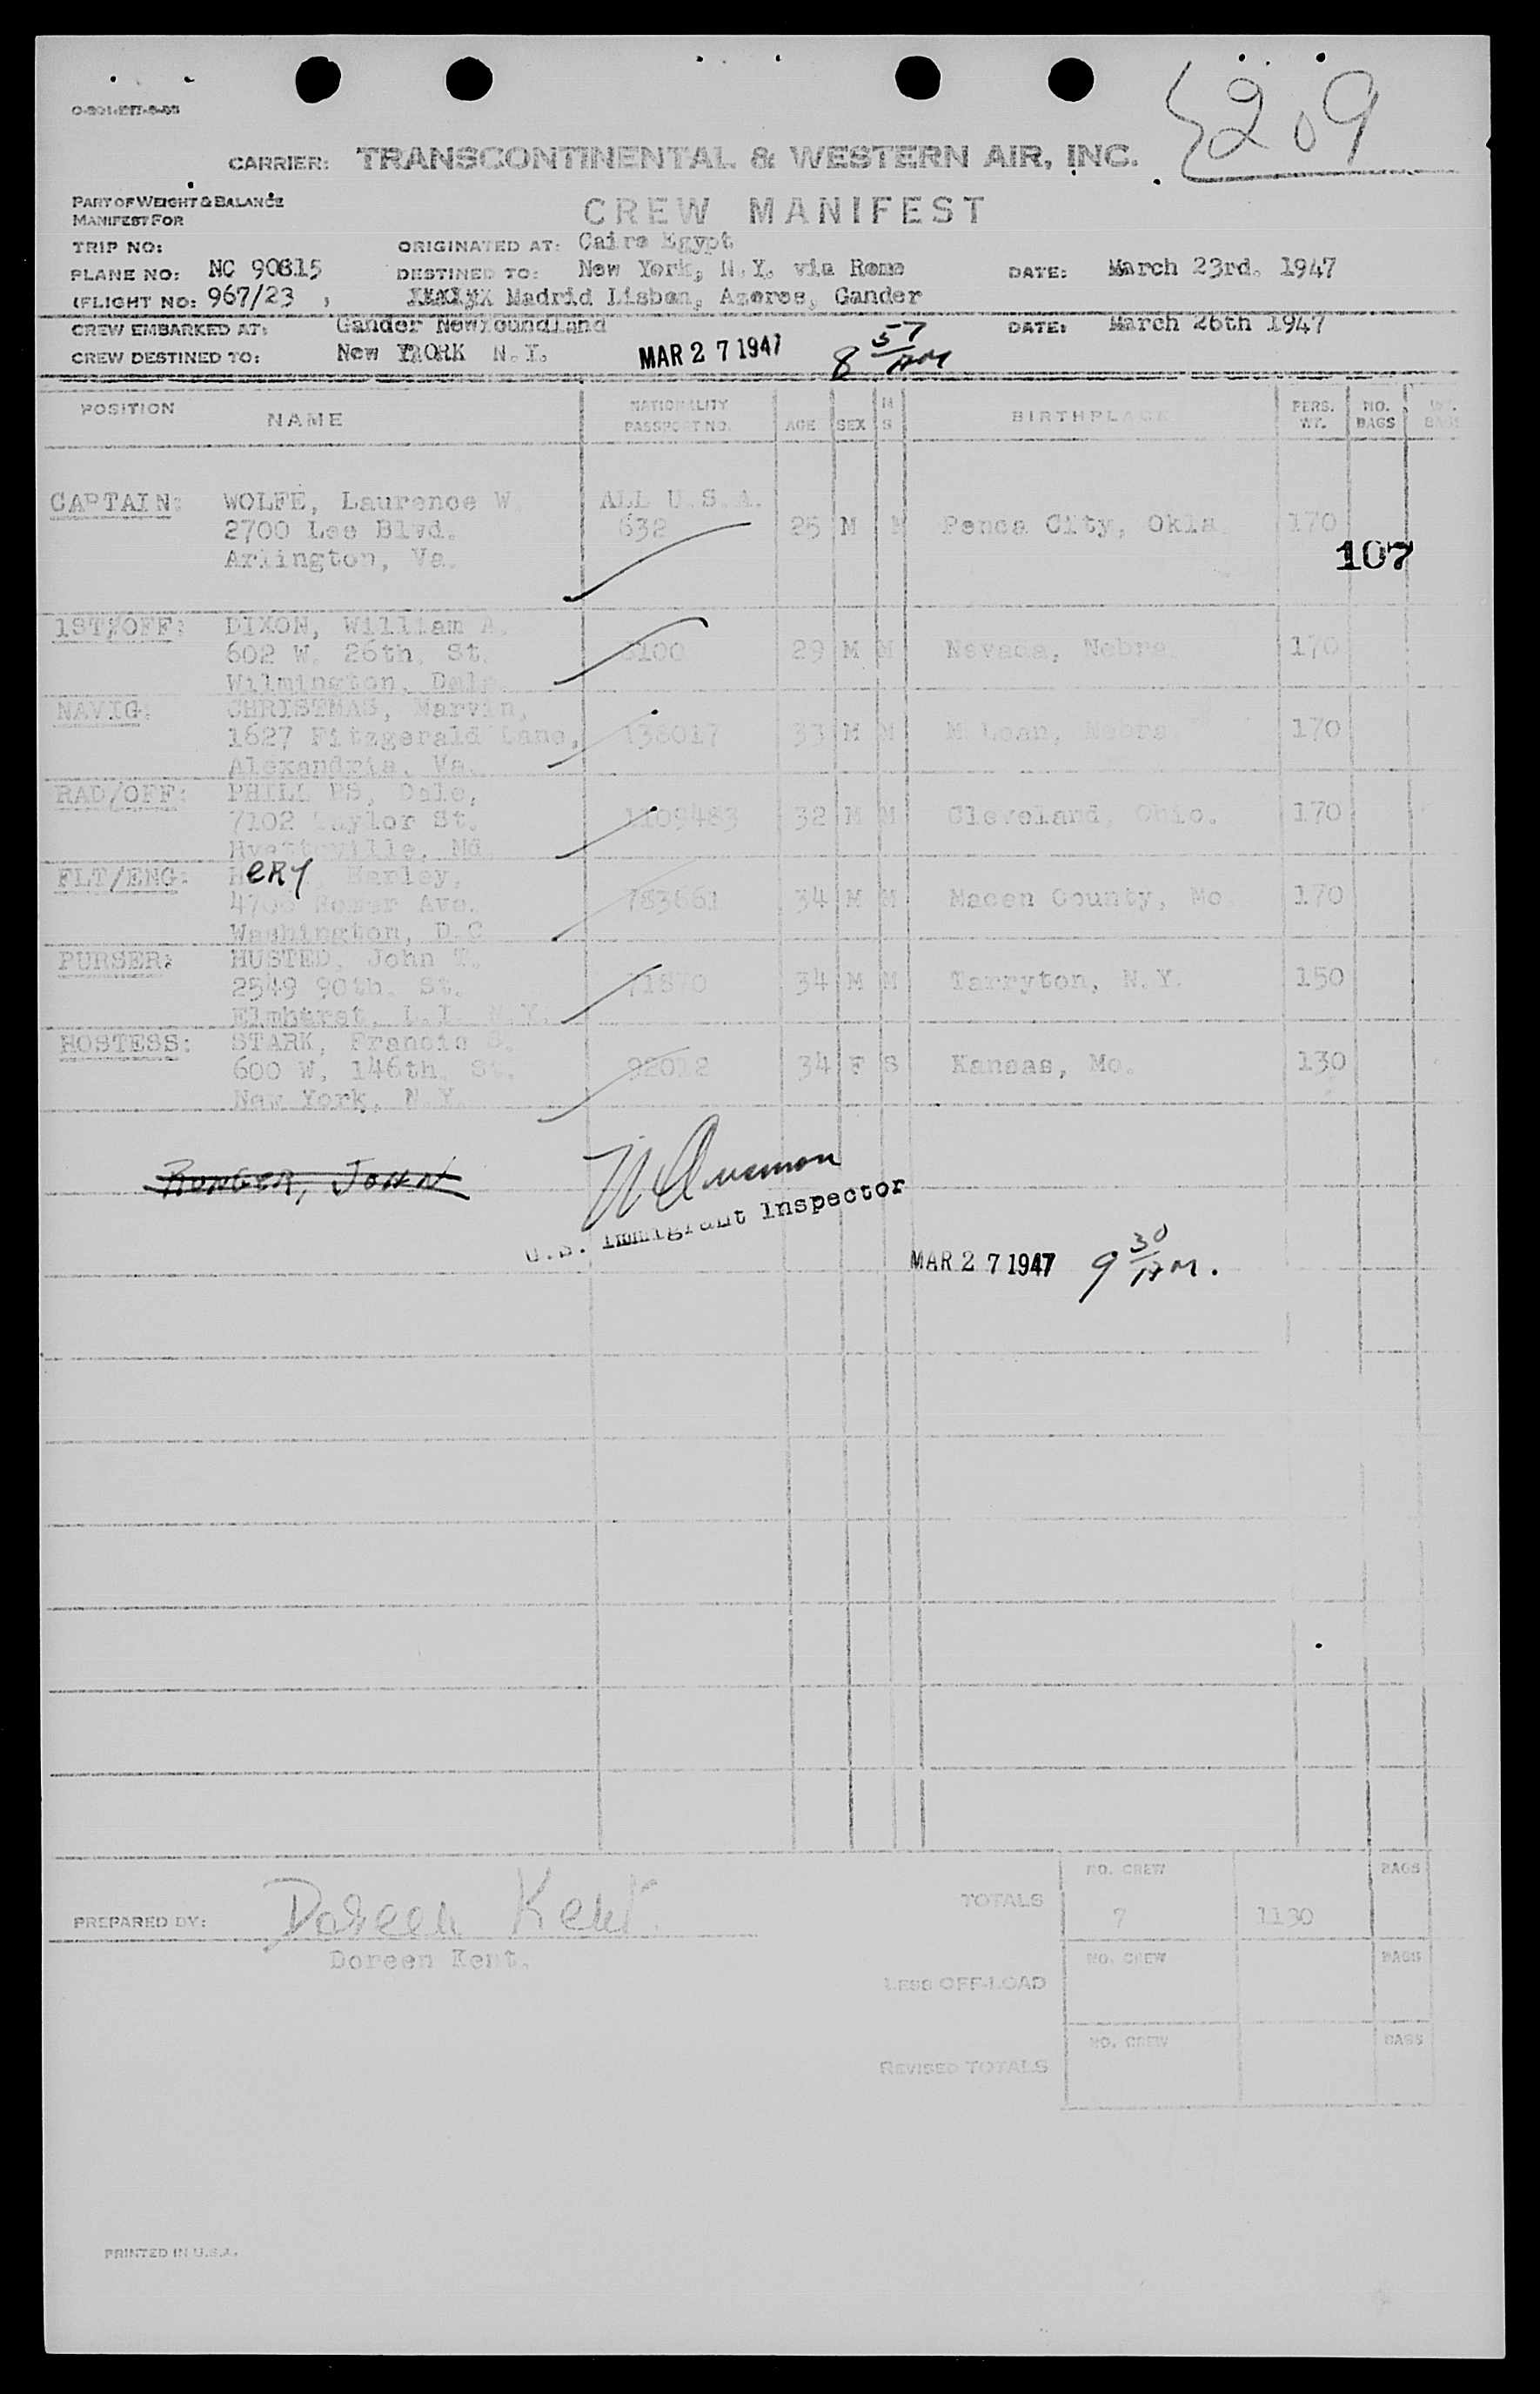 209
CARRIER: TRANSCONTINENTAL & WESTERN AIR, INC.
PART OF WEIGHT & BALANCE
MANIFEST FOR
CREW MANIFEST
TRIP NO: ORIGINATED AT: Cairo Egypt
PLANE NO: NC 90815 DESTINED TO: New York, N.Y. via Rome DATE: March 23rd. 1947
(FLIGHT NO: 967/23 , Madrid Lisbon, Azores, Gander
CREW EMBARKED AT: Gander Newfoundland DATE: March 26th 1947
CREW DESTINED TO: New YORK N.Y. MAR 27 1947 8 57 AM
POSITION NAME NATIONALITY PASSPORT NO. AGE SEX M S BIRTHPLACE PERS. WT. NO. BAGS WT. BAGS
CAPTAIN: WOLFE, Laurence W. ALL U.S.A.
2700 Lee Blvd. 632 M M Ponca City, Okla. 170
Arlington, Va. 107
1ST/OFF: DIXON, William A.
602 W. 26th. St. 29 M M Nevada, Nebra. 170
Wilmington,
NAVIG: CHRISTMAS, Marvin,
1627 Fitzgerald Lane, 33 M M 170
Alexandria, Va.
RAD/OFF: Dale,
7102 Taylor St. 1109483 32 M M Cleveland, Ohio. 170
Hyattsville, Md.
FLT/ENG: HERY, Harley,
Ave. 34 M M Macon County, Mo. 170
Washington, D.C.
PURSER: HUSTED, John T.
2549 90th. St. 34 M M Tarryton, N.Y. 150
Elmhurst, L.I. N.Y.
HOSTESS: STARK, Francis
600 W. 146th. St. 92012 34 F S Kansas, Mo. 130
New York, N.Y.
RUNGER, JOHN
U.S. Immigrant Inspector
MAR 27 1947 9 30 AM.
NO. CREW BAGS
TOTALS 7 1130
PREPARED BY: Doreen Kent.
Doreen Kent.
NO. CREW BAGS
LESS OFF-LOAD
NO. CREW BAGS
REVISED TOTALS
PRINTED IN U.S.A.